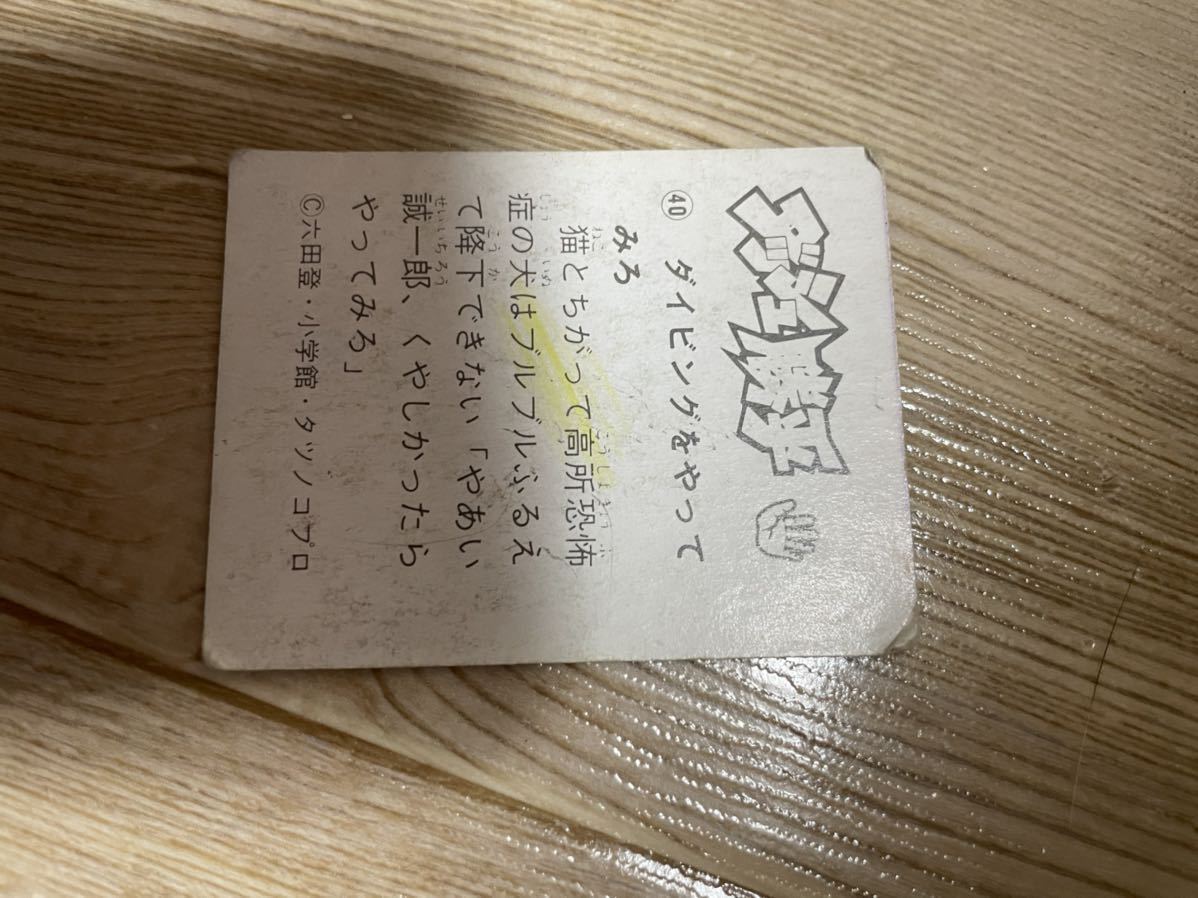 ダッシュ勝平
㊵ ダイビングをやって
みろ
猫とちがって高所恐怖
症の犬はブルブルふるえ
て降下できない「やあい
誠一郎、くやしかったら
やってみろ」
©六田登・小学館・タツノコプロ